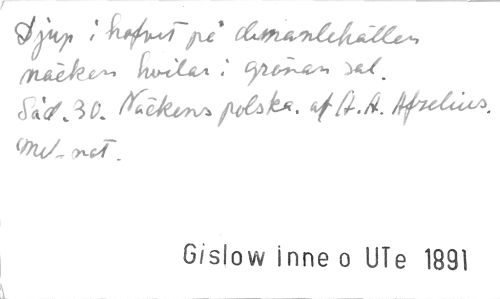 Djup i hafvet på demantehällen
näcken hvilar i grönan sal.
Säd. 30. Näckens polska. af A. A. Afzelius.
Med not.
Gislow inne o UTe 1891